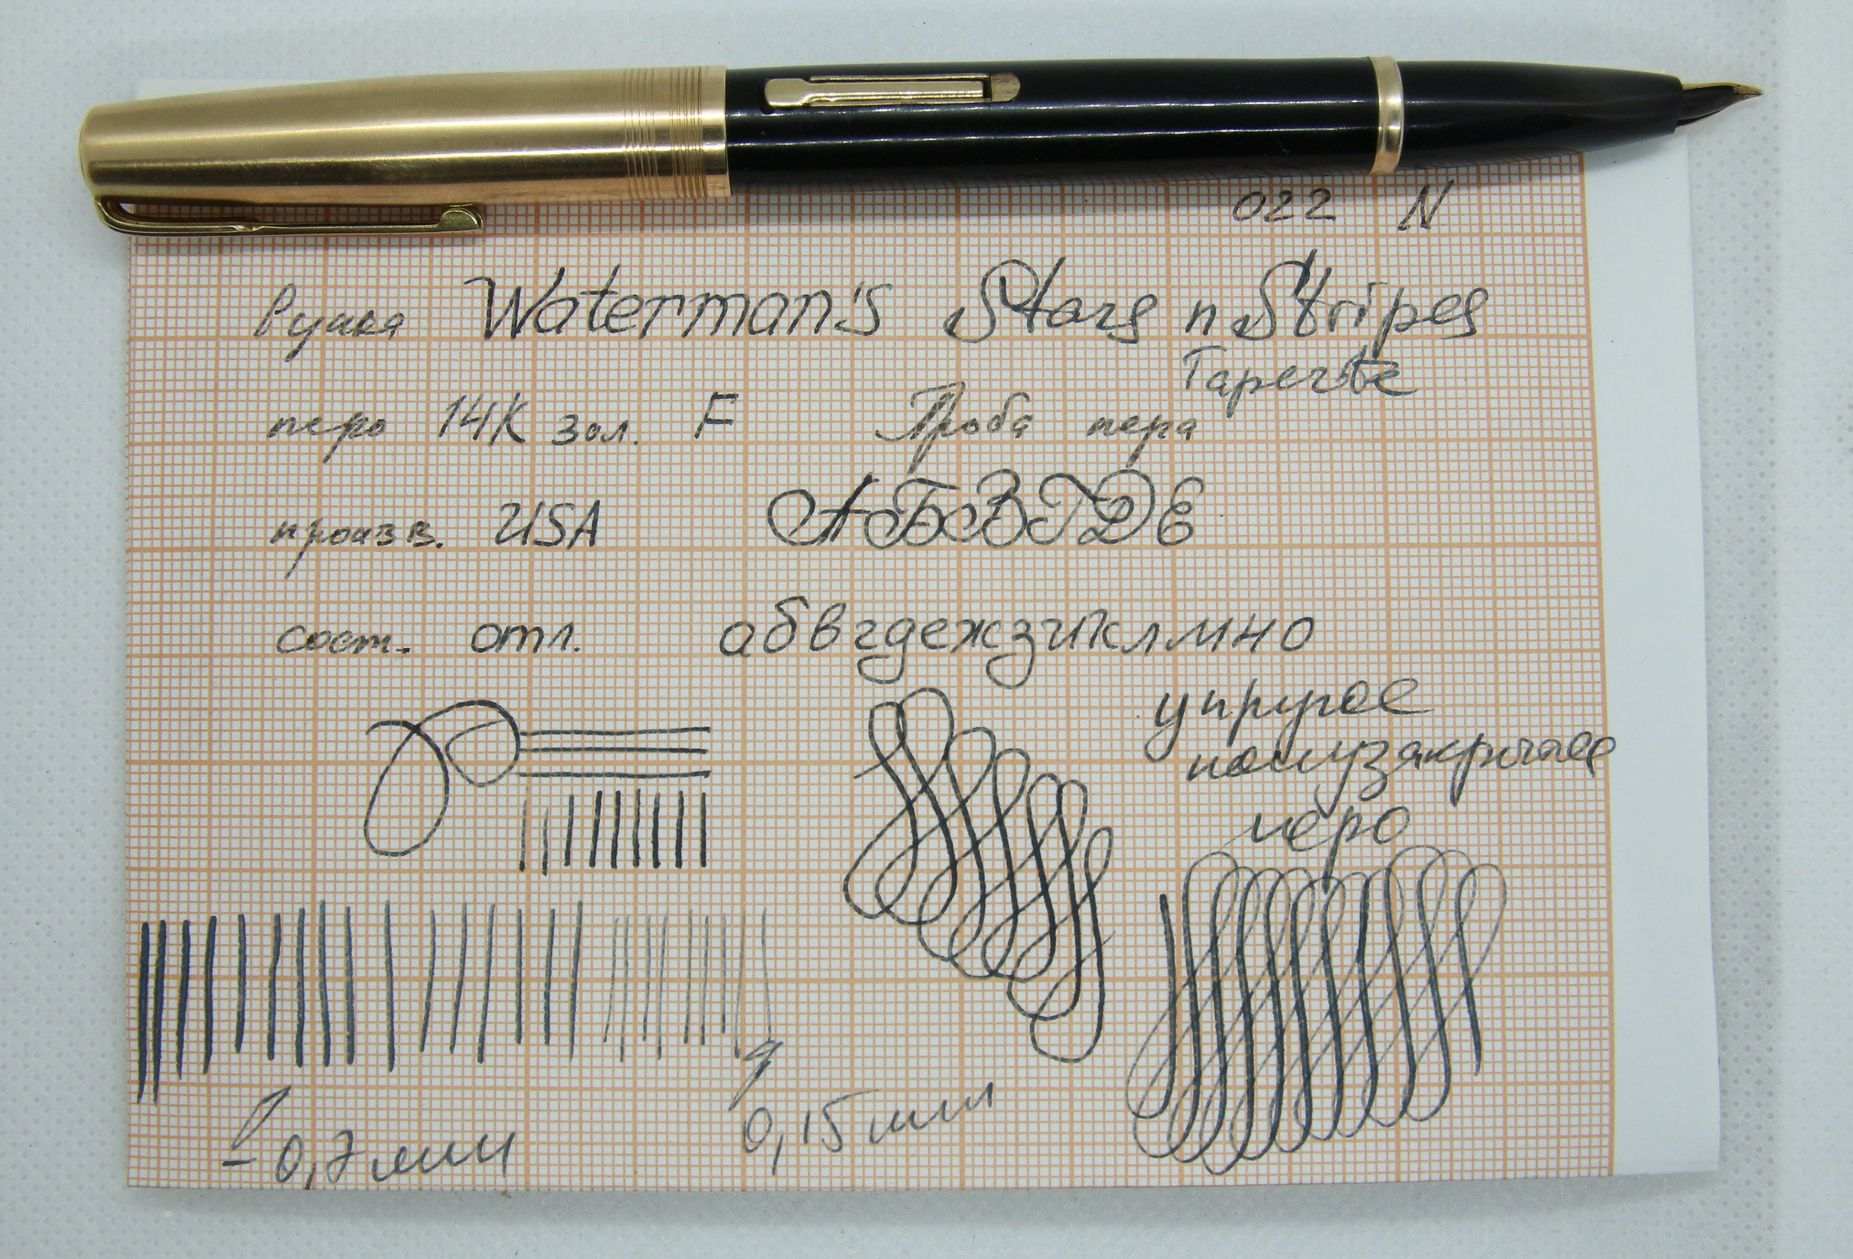 022 N
Ручка Waterman's Stars n Stripes
Taperite
перо 14К зол. F Проба пера
произв. USA АБВГДЕ
сост. отл. абвгдежзиклмно
упругое
полузакрытое
перо
0,7 мм
0,15 мм